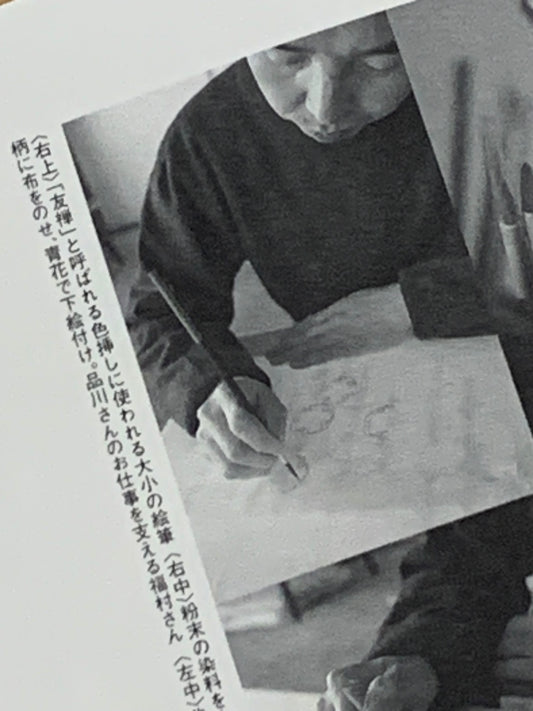 〈右上〉「友禅」と呼ばれる色挿しに使われる大小の絵筆 〈右中〉粉末の染料を
柄に布をのせ、青花で下絵付け。品川さんのお仕事を支える福村さん 〈左中〉